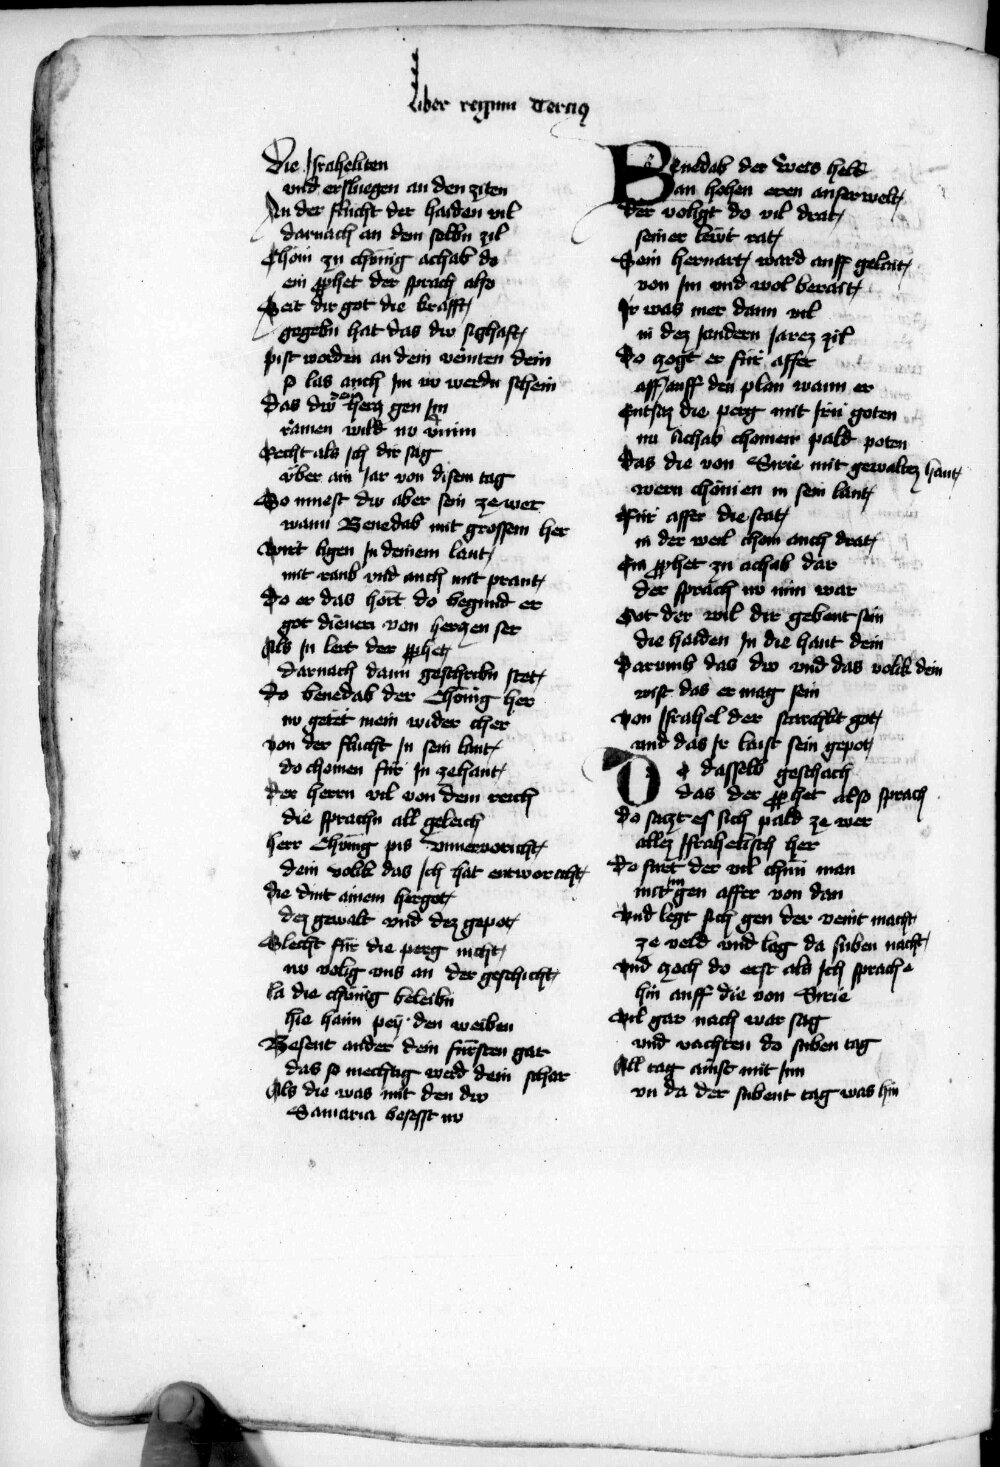 Liber regum Tercius
Die Israheliten
vnd ersluegen an den ziten
An der flucht der haiden vil
darnach an dem selbn zil
Chom zu chunig achab do
ein pphet der sprach also
Seit dir got die krafft
gegebn hat das dw sighafft
pist worden an dein veinten dein
so las auch Im nv werdn schein
Das dw dein hercz gen Im
ramen wild nv vnim
Recht als Ich dir sag
vber ain Jar von disem tag
So muest dw aber sein ze wer
wann Benedab mit grossem her
wirt ligen In deinem lant
mit raub vnd auch mit prant
Do er das hort do begund er
got dienen von herczen ser
Als In lert der pphet
darnach dann geschribn stet
do benedab der Chunig her
nv getet mein wider cher
von der flucht In sein lant
do chomen fur In zehant
Der herrn vil von dem reich
die sprachn all geleich
herr Chunig pis vnuervoricht
dein volkk das Ich hat entworcht
die dint ainem hergot
dez gewalt vnd dez gepot
Slecht fur die perg nicht
nv volig vns an der geschicht
la die chunig beleibn
hie haim pey den weiben
Besent ander dein fursten gar
das so mechtig werd dein schar
Als die was mit den dw
Samaria besesst nv
Benedab der Weis helt
an hohen eren auserwelt
Der voligt do vil drat
seiner lewt rat
Sein heruart ward auff geleit
von Im vnd wol berait
Ir was mer dann vil
in dez andern Jarez zil
Do zogt er fur affer
auff den plan wann er
Entsacz die perg mit Irn goten
nu Achab chomen pald poten
Das die von Sirie mit gewaltez hant
wern chomen in sein lant
Fur affer die stat
in der weil chom auch drat
Ein pphet zu achab dar
der sprach nv nim war
Got der wil dir gebent sein
die haiden In die hant dein
Darumb das dw vnd das volkk dein
wist das er mag sein
von Israhel der starchkt got
vnd das Ir laist sein gepot
Do dasselb geschach
das der pphet also sprach
Do saczt es sich pald ze wer
allez Israhelisch her
Do furt der vil chun man
mit im gen affer von dan
Vnd legt sich gen der veint macht
ze veld vnd lag da siben nacht
vnd zoch do erst als Ich sprach
hin auff die von Sirie
Vil gar nach war sag
vnd vachten do siben tag
All tag ainst mit Inn
vn da der sibent tag was hin